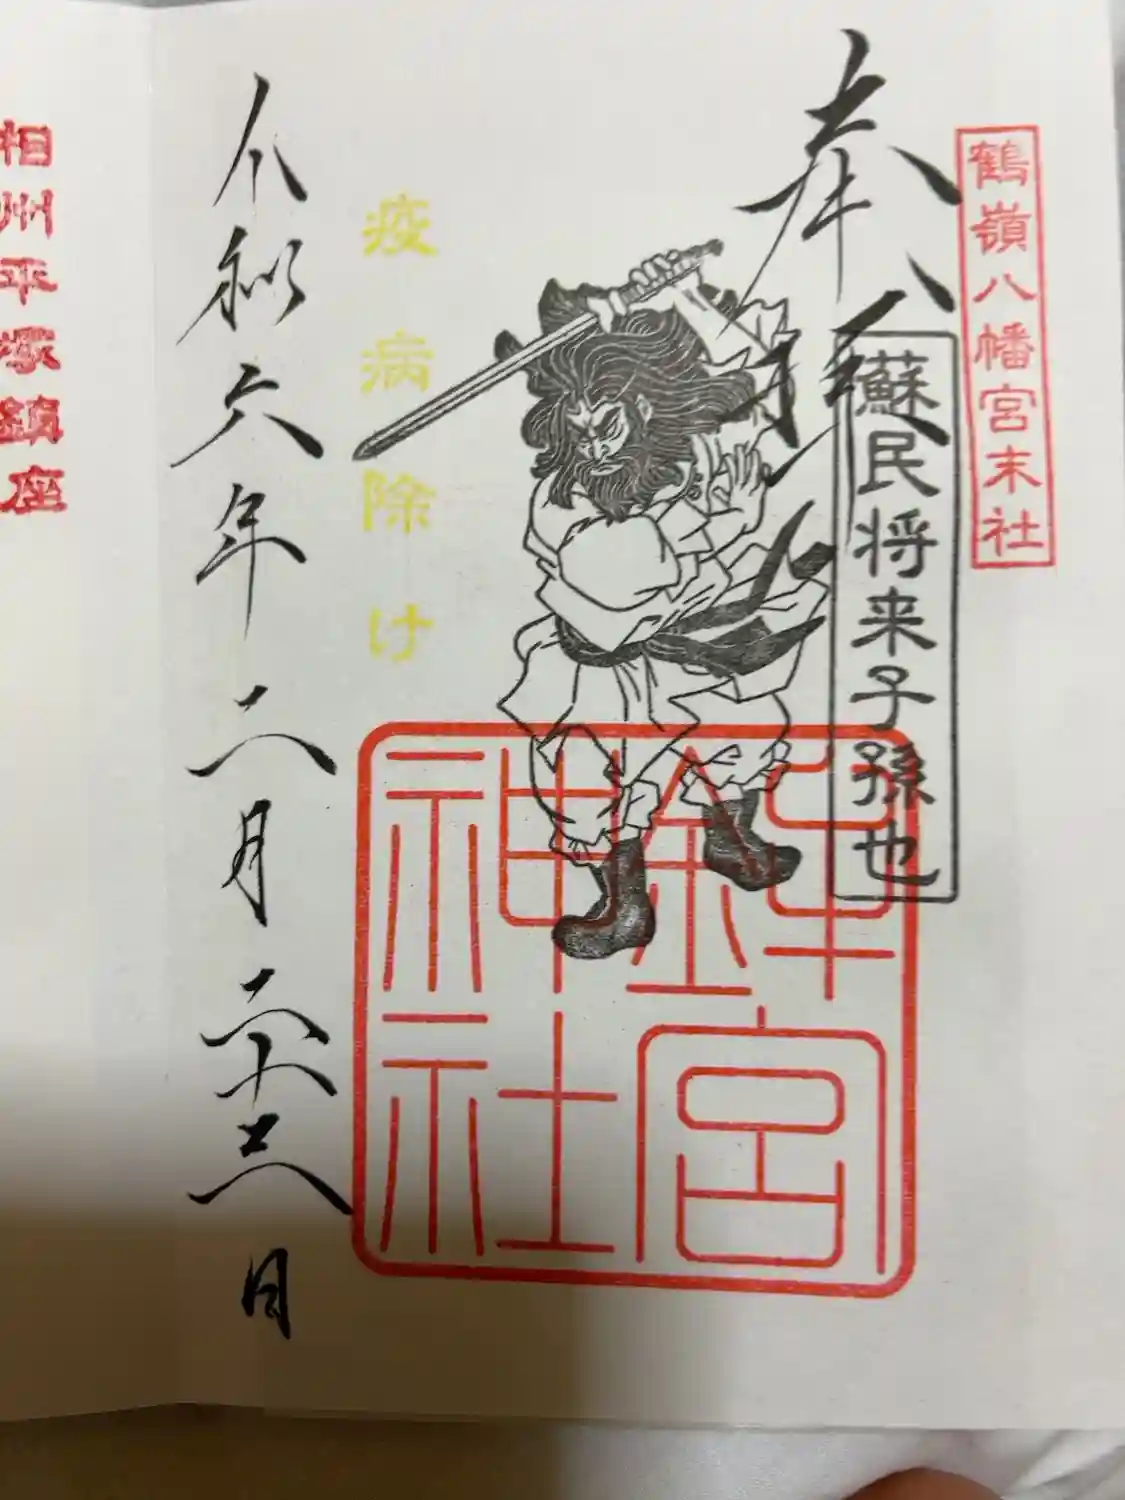 鶴嶺八幡宮末社
奉拝
蘇民将来子孫也
鉾宮
神社
疫病除け
令和六年二月二十三日
相州平塚鎮座